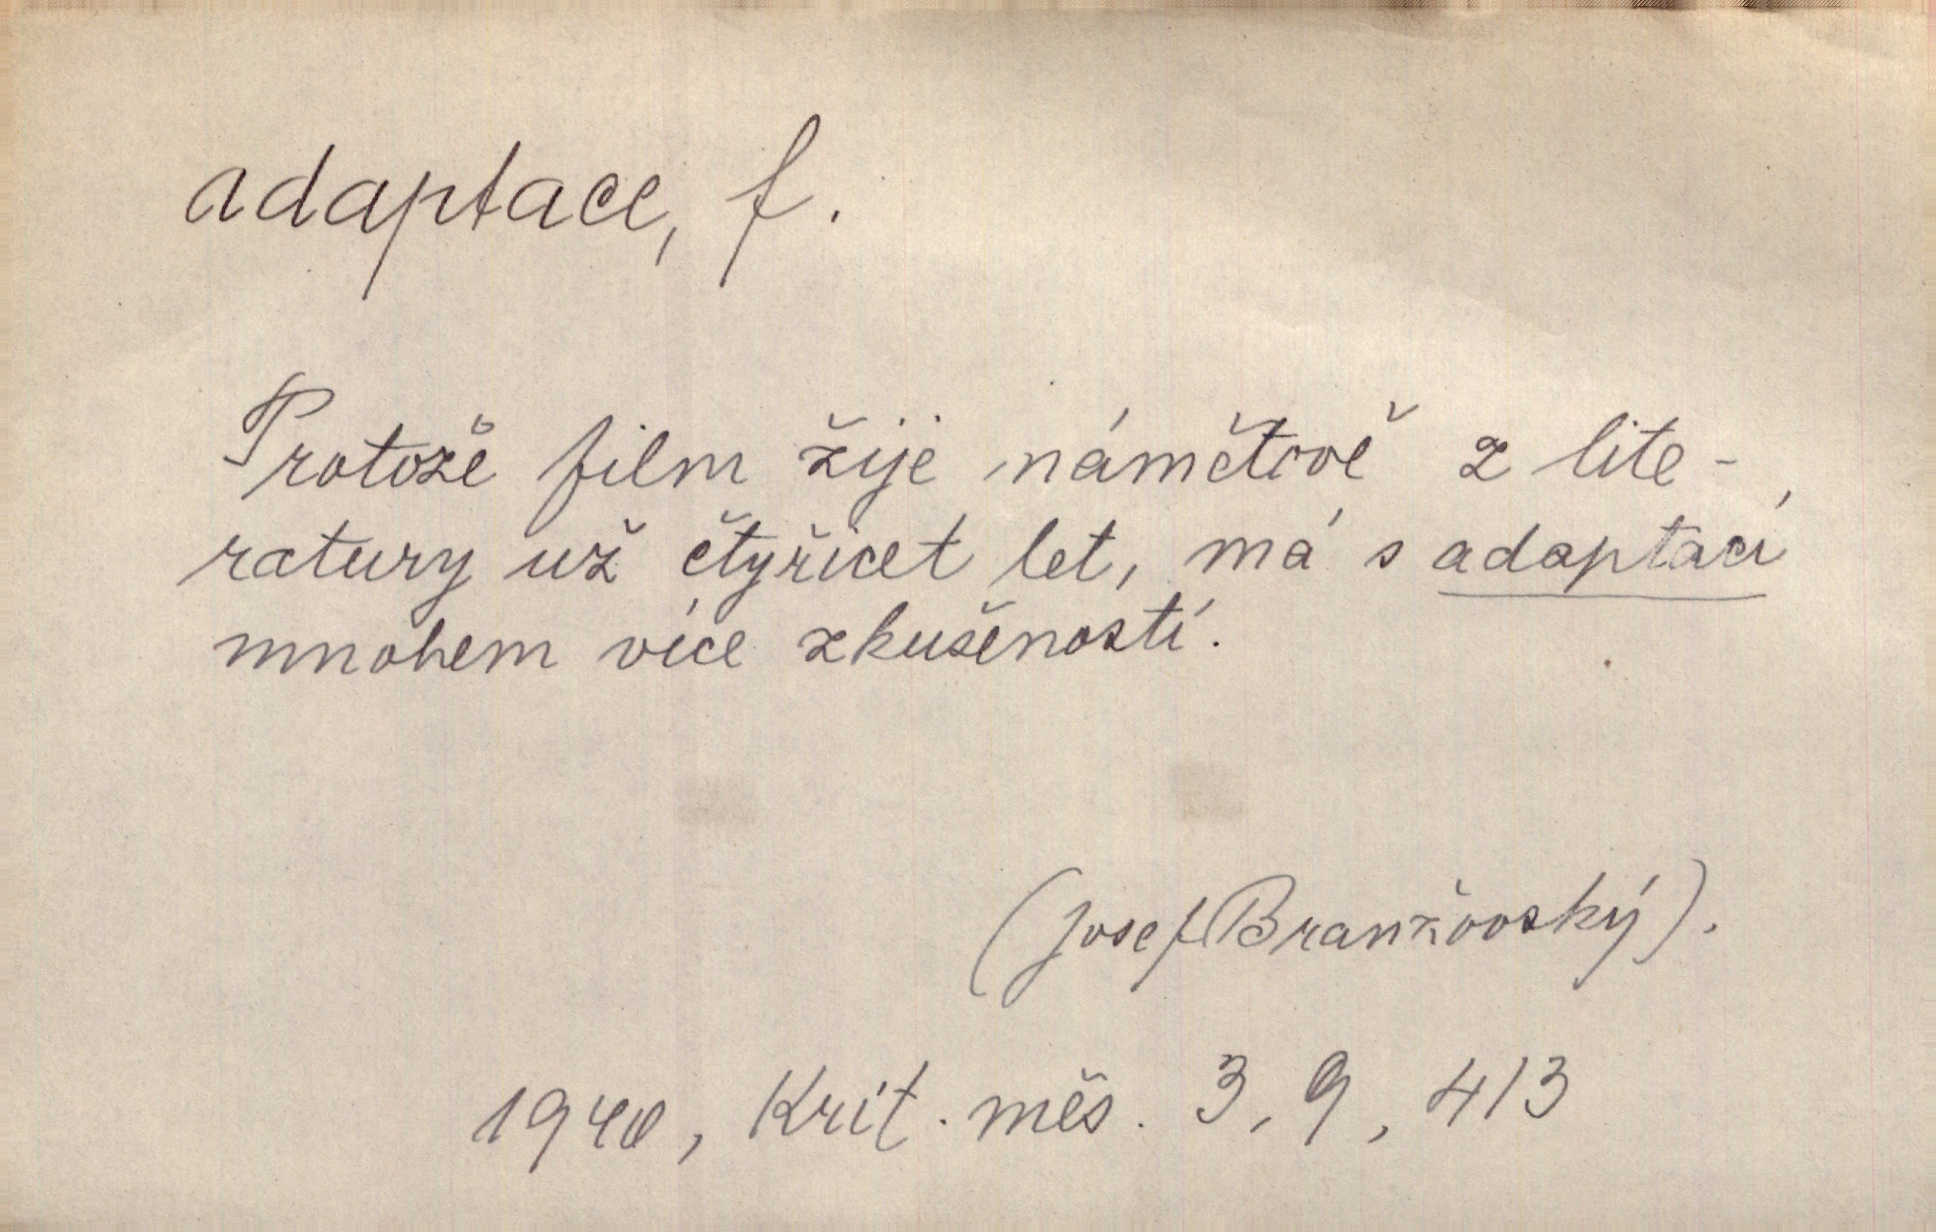 adaptace, f.
Protože film žije námětově z lite-
ratury už čtyřicet let, má s adaptací
mnohem více zkušeností.
(Josef Branžovský).
1940, Krit. měs. 3, 9, 413